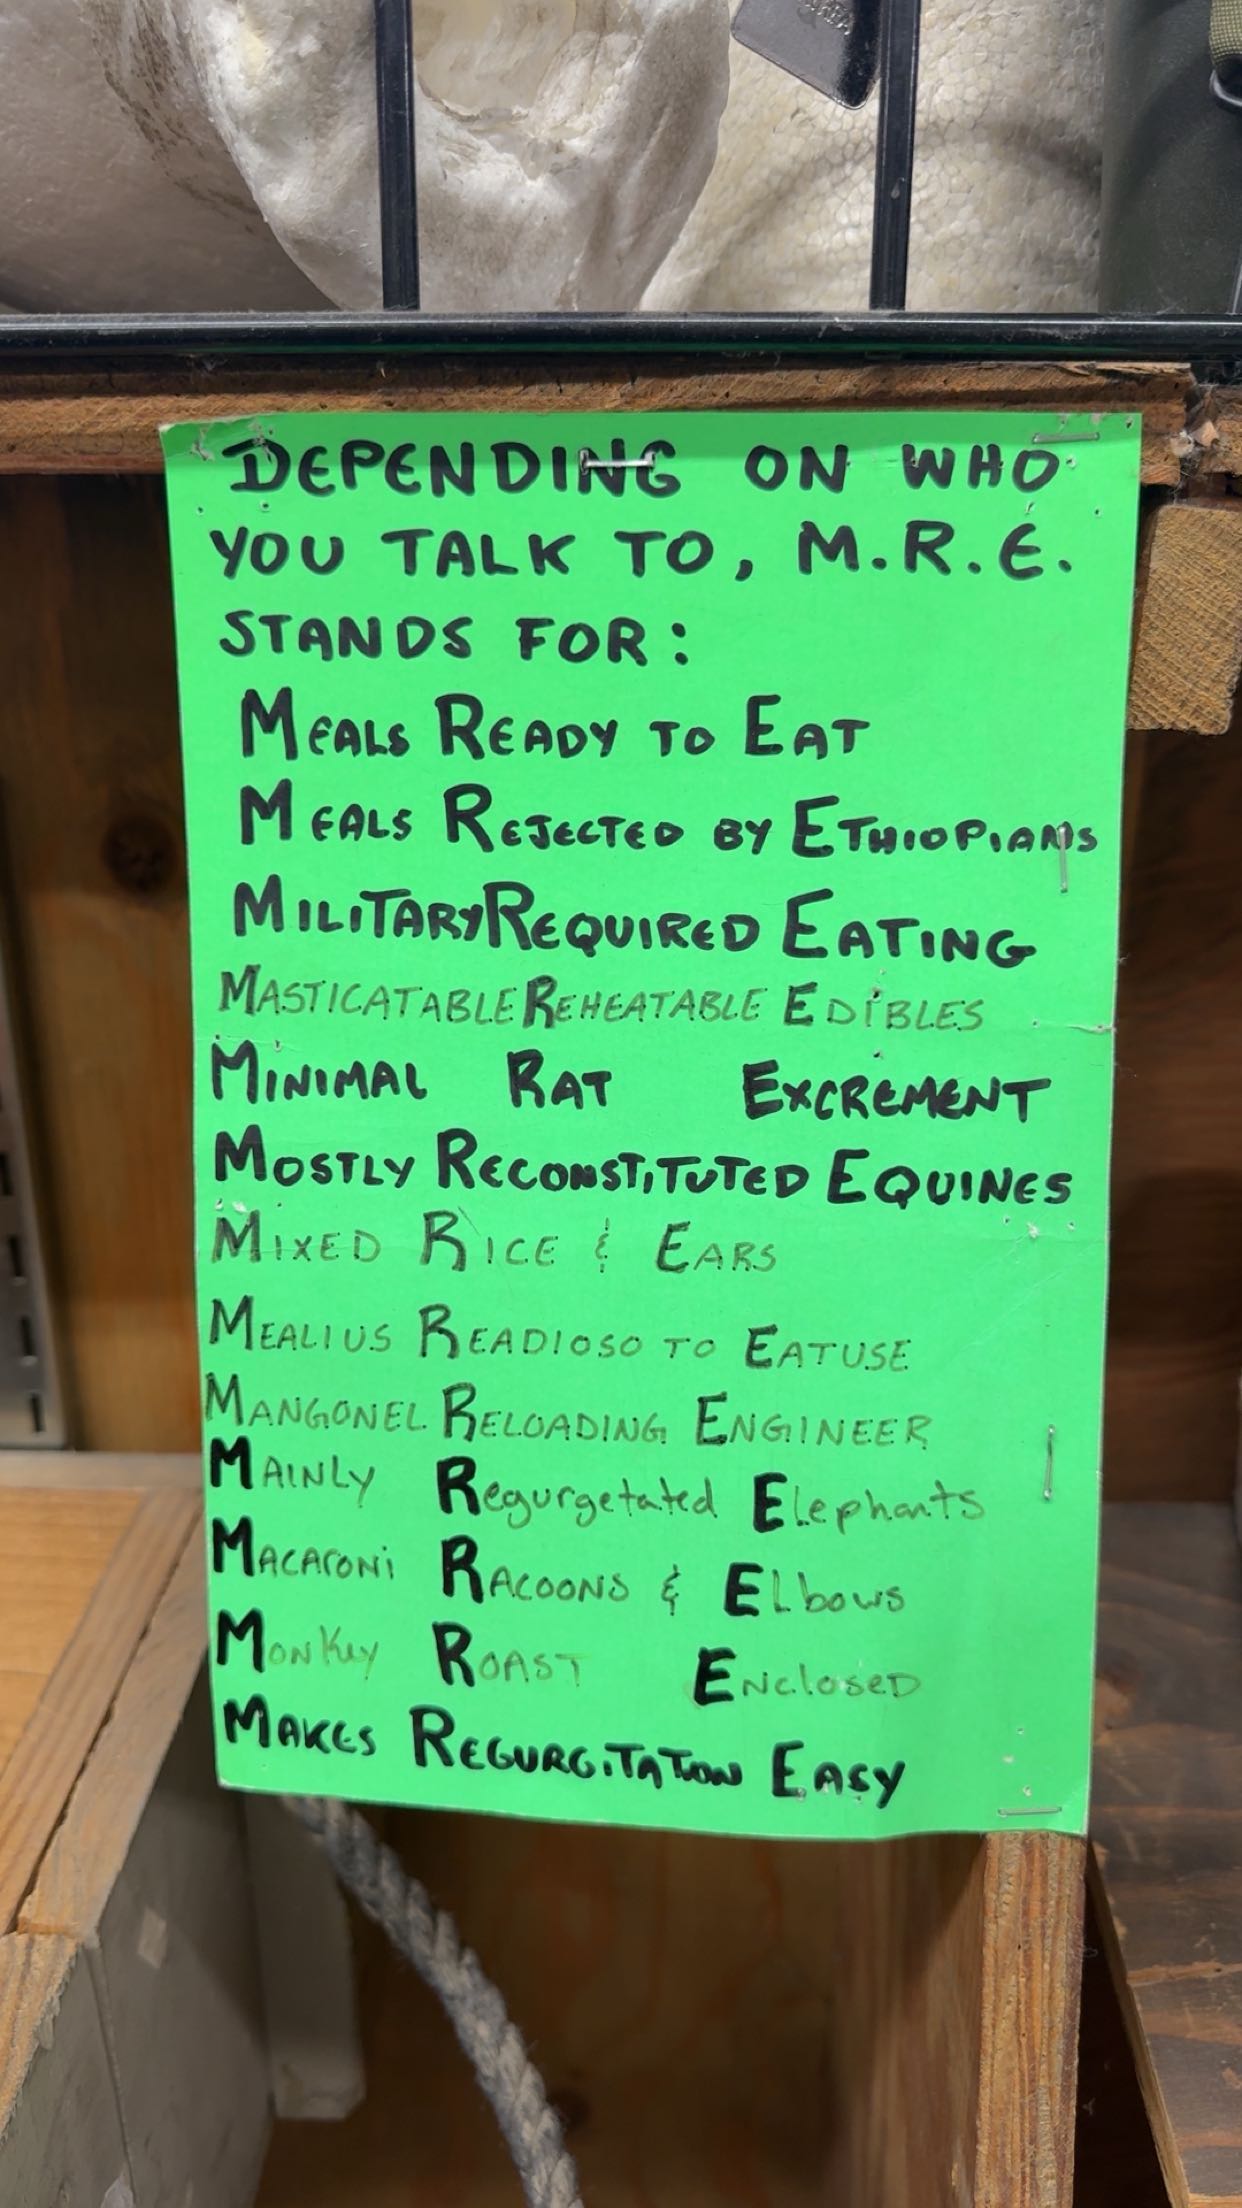 DEPENDING ON WHO
YOU TALK TO, M.R.E.
STANDS FOR:
MEALS READY TO EAT
MEALS REJECTED BY ETHIOPIANS
MILITARY REQUIRED EATING
MASTICATABLE REHEATABLE EDIBLES
MINIMAL RAT EXCREMENT
MOSTLY RECONSTITUTED EQUINES
MIXED RICE & EARS
MEALIUS READIOSO TO EATUSE
MANGONEL RELOADING ENGINEER
MAINLY Regurgetated Elephants
MACARONi RACOONS & ELbows
MonKey ROAST ENclosED
MAKES REGURGiTATION EASY